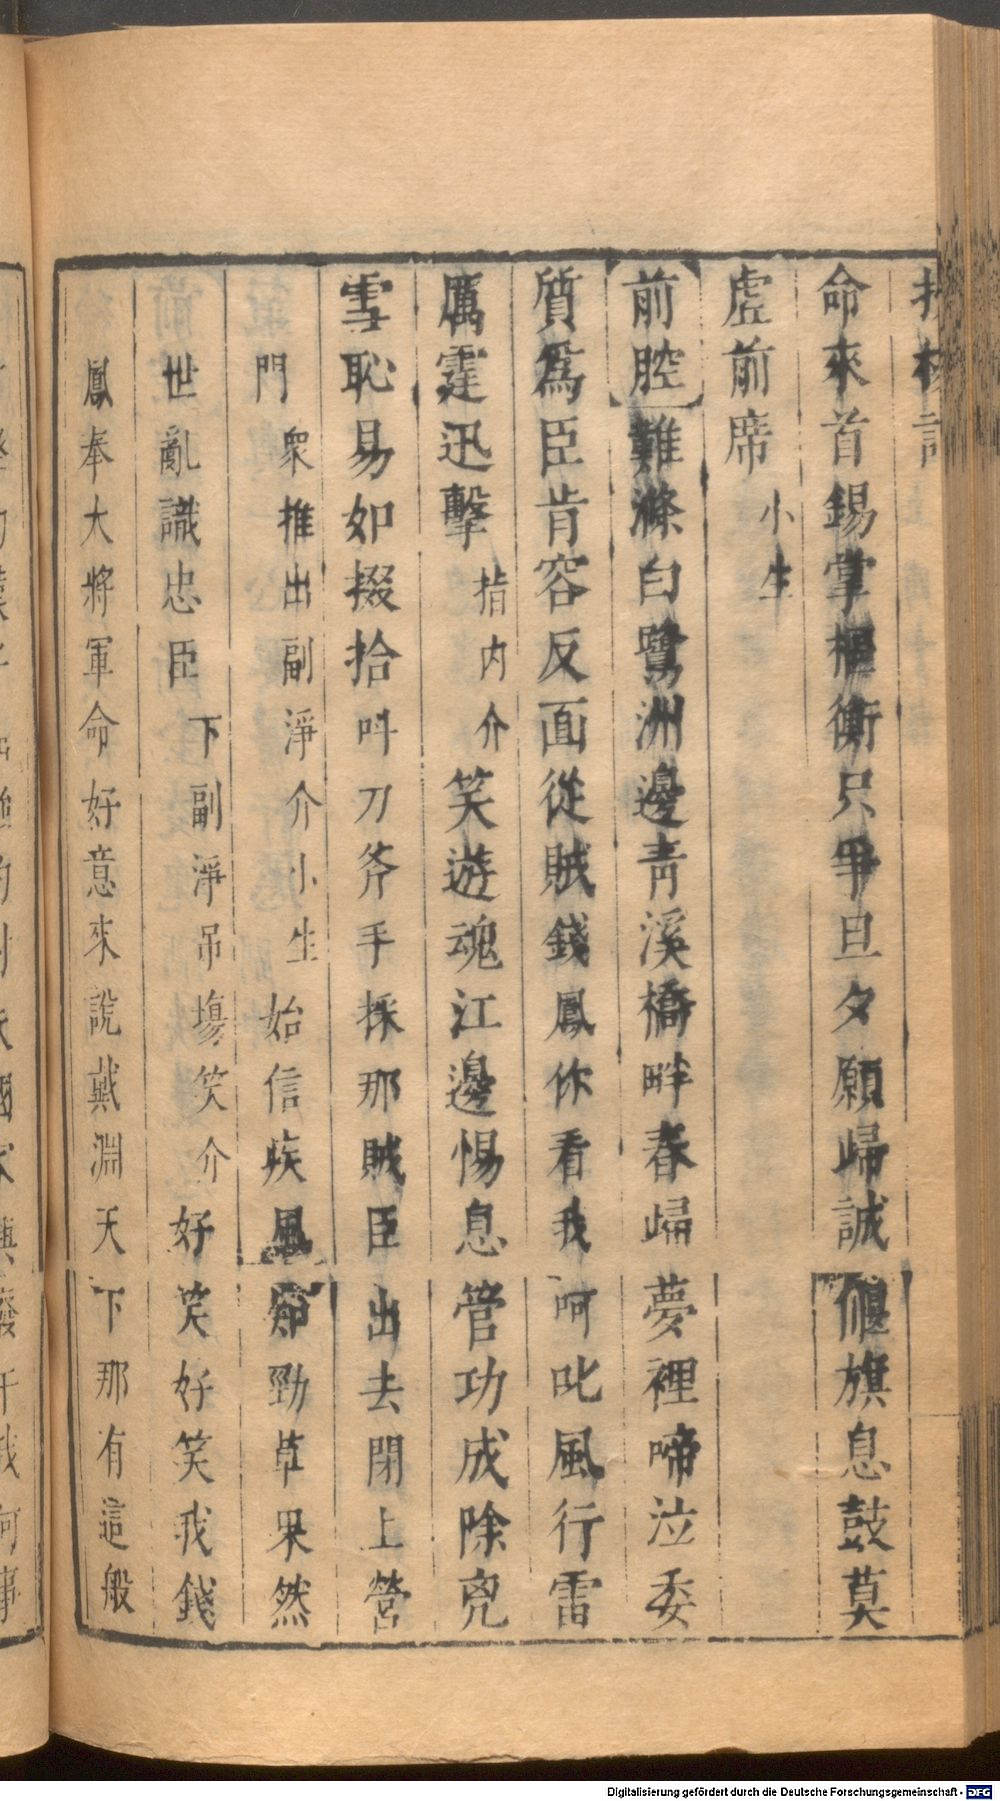 命來首錫掌樞衡只爭旦夕願歸誠偃旗息鼓莫
虛前席小生
前腔難滌白鷺洲邊青溪橋畔春歸夢裡啼泣委
質爲臣肯容反面從賊錢鳳你看我呵叱風行雷
厲霆迅擊指內介笑遊魂江邊惕息管功成除兇
雪恥易如掇拾呌刀斧手採那賊臣出去閉上營
門衆推出副淨介小生始信疾風知勁草果然
世亂識忠臣下副淨吊塲笑介好笑好笑我錢
鳳奉大將軍命好意來說戴淵天下那有這般
Digitalisierung gefördert durch die Deutsche Forschungsgemeinschaft - DFG